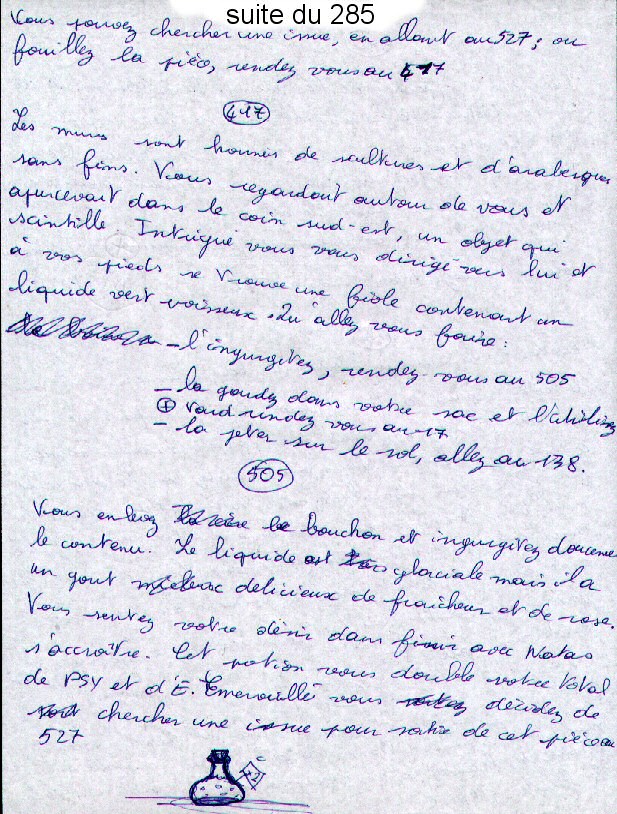 suite du 285
Vous pouvez chercher une issue, en allant au 527; ou
fouillez la pièce, rendez vous au 417
417
Les murs sont hournés de scultures et d'arabesques
sans fins. Vous regardant autour de vous et
apercevait dans le coin sud-est, un objet qui
scintille Intrigué vous vous dirigé vers lui et
à vos pieds se trouve une fiole contenant un
liquide vert voisseux. Qu'allez vous faire:
- l'ingurgitez, rendez-vous au 505
- la gardez dans votre sac et l'utilisez
+ tard rendez vous au 17
- la jeter sur le sol, allez au 138.
505
Vous enlevez le bouchon et ingurgitez doucement
le contenu. Le liquide est glaciale mais il a
un gout délicieux de fraicheur et de rose.
Vous sentez votre désir dans finir avec Natas
s'accroître. Cet potion vous double votre total
de PSY et d'E. Emerveillé vous décidez de
chercher une issue pour sortir de cet pièce au
527